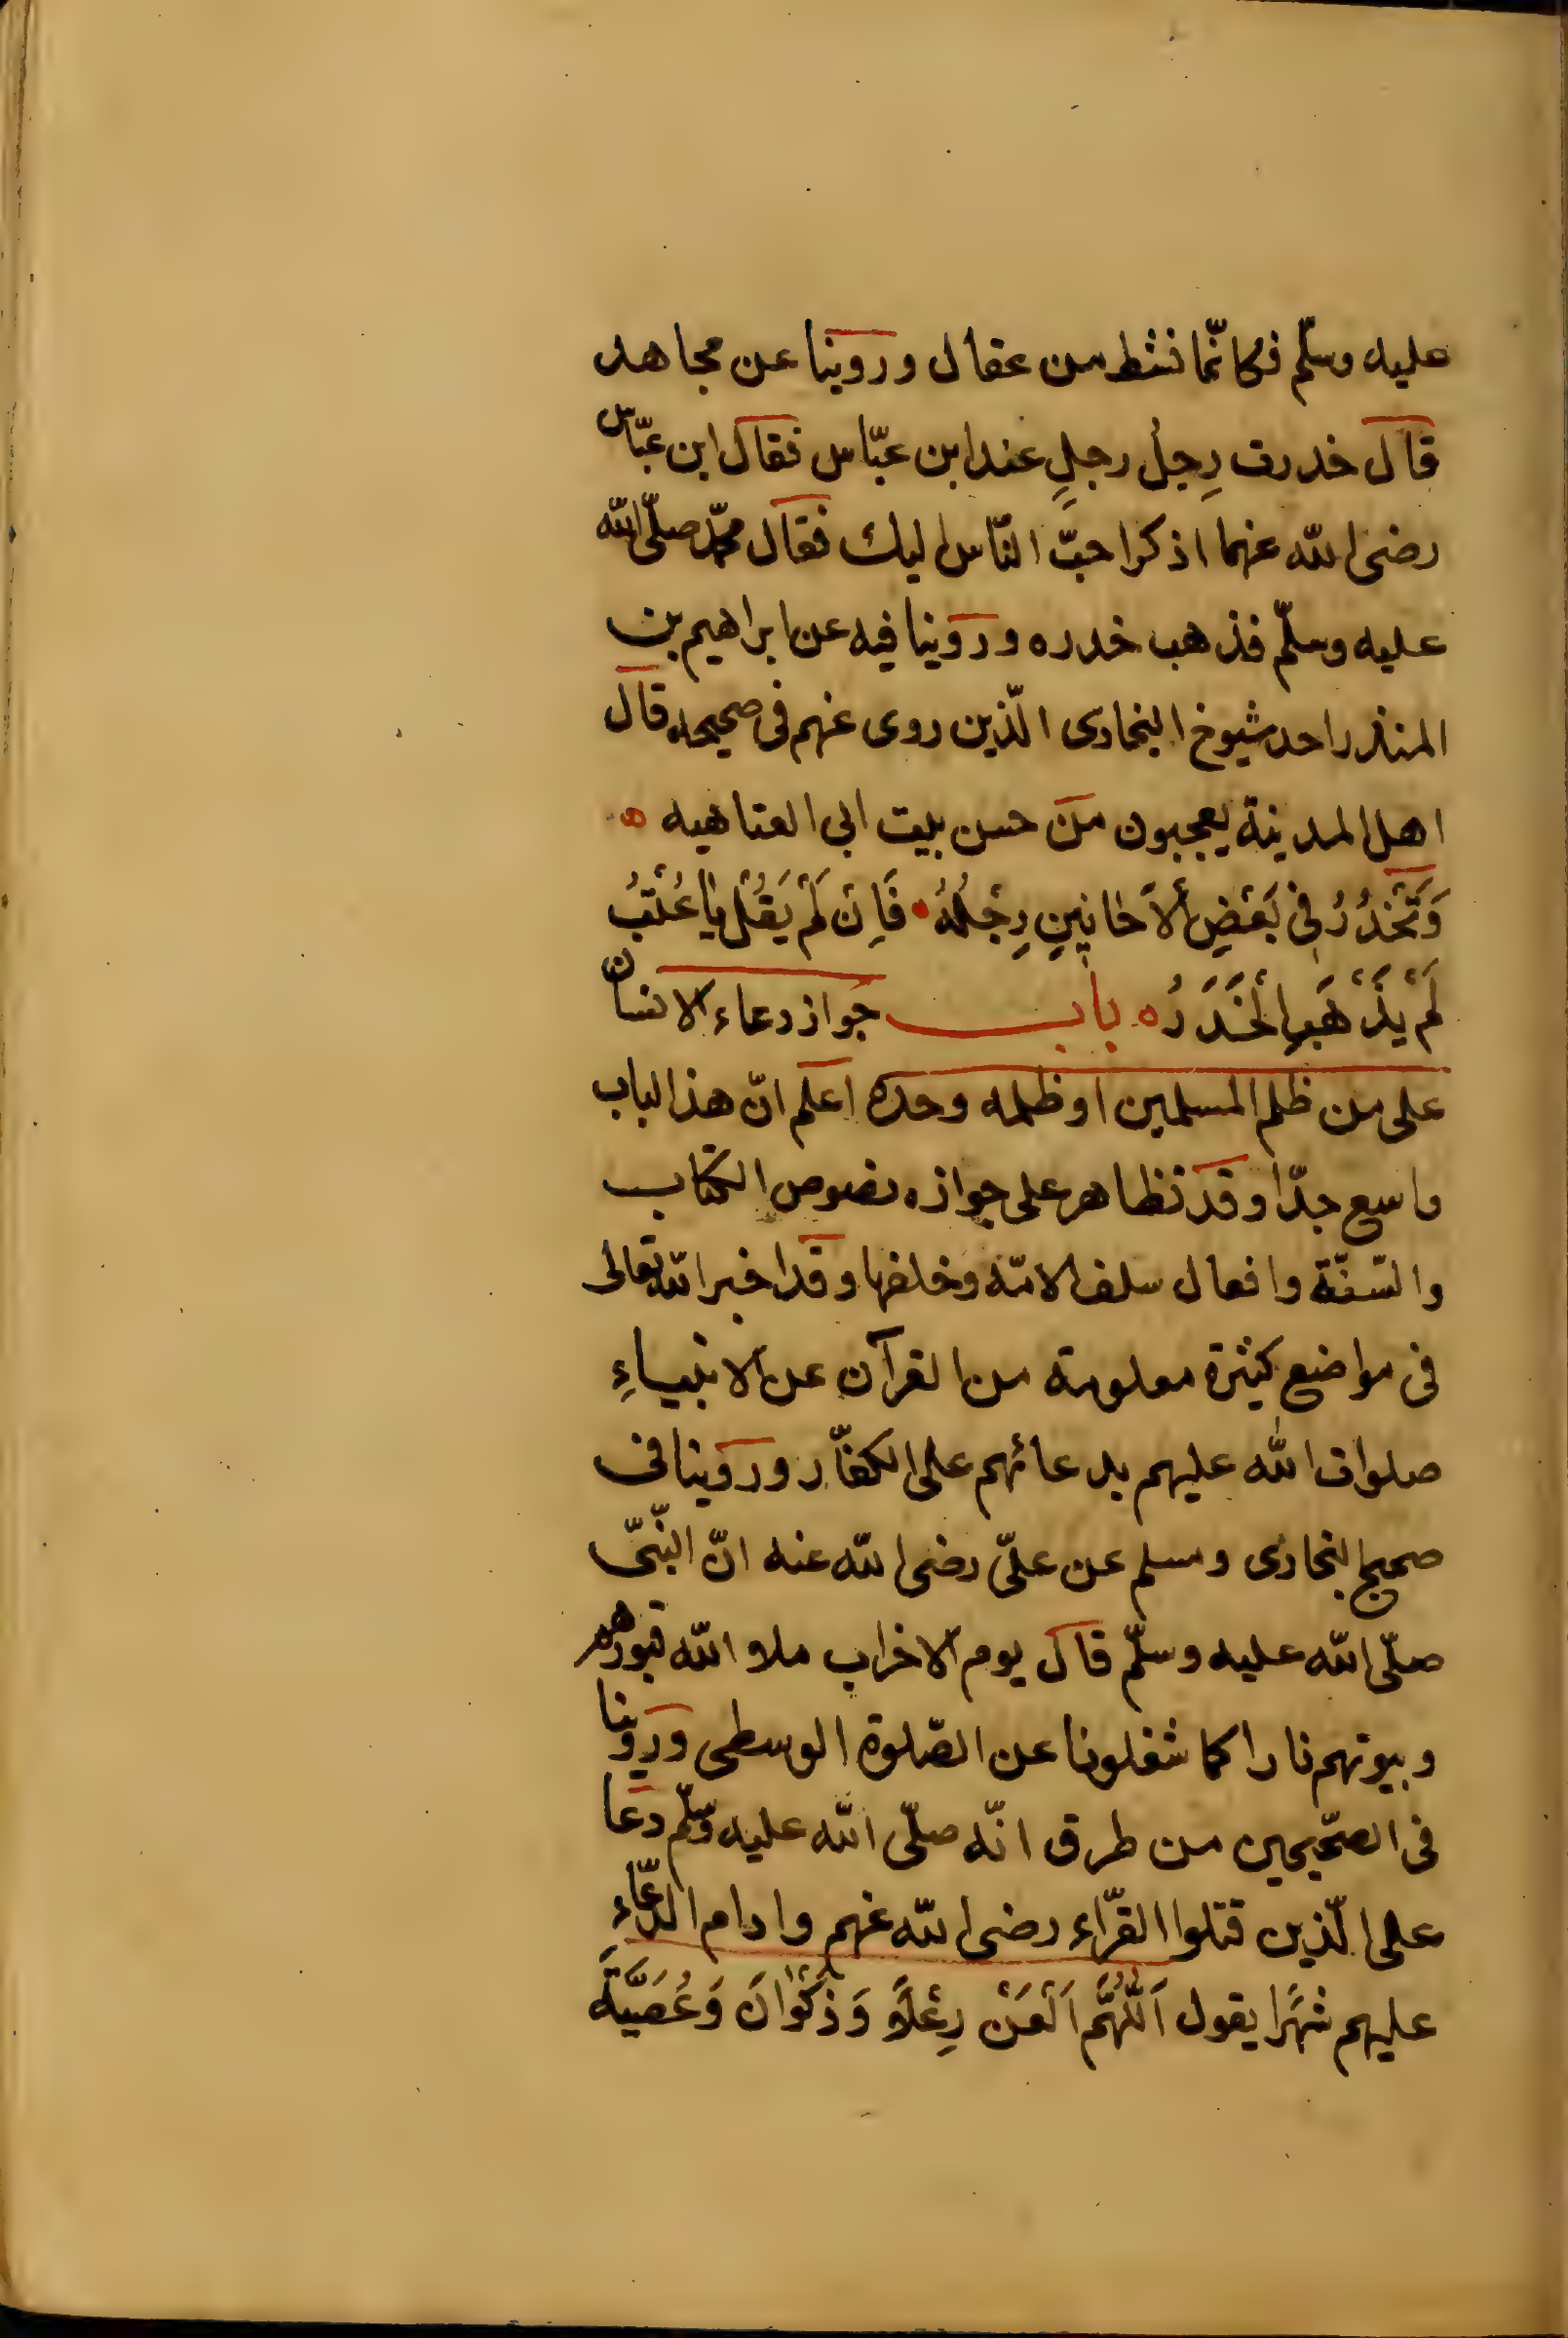 عليه وسلّم فكانّما نشط من عقال وروينا عن مجاهد
قال خدرت رِجلُ رجلٍ عند ابن عبّاس فقال ابن عبّاس
رضى الله عنهما اذكر احبّ النّاس اليك فقال محمّد صلّى الله
عليه وسلّم فذهب خدره وروينا فيه عن ابراهيم بن
المنذر احد شيوخ البخارى الّذين روى عنهم فى صحيحه قال
اهل المدينة يعجبون من حسن بيت ابى العتاهيه ه
وَتَخْدُرُ فِى بَعْضِ الْأَحَايِينِ رِجْلُهُ • فَاِنْ لَمْ يَقُلْ يَا عُتْبُ
لَمْ يَذْهَبِ الْخَدَرُ ه باب جواز دعاء الانسان
على من ظلم المسلمين او ظلمه وحده اعلم انّ هذ الباب
واسع جدّا وقد تظاهر على جوازه نصوص الكتاب
والسّنّة وافعال سلف الامّة وخلفها وقد اخبر الله تعالى
فى مواضع كثيرة معلومة من القرآن عن الانبياءِ
صلوات الله عليهم بدعائهم على الكفّار وروينا فى
صحيح البخارى ومسلم عن علىّ رضى الله عنه انّ النّبىّ
صلّى الله عليه وسلّم قال يوم الاخراب ملاء الله قبورهم
وبيوتهم نارا كما شغلونا عن الصّلوة الوسطى وروينا
فى الصّحيحين من طرق انّه صلّى الله عليه وسلّم دعا
على الّذين قتلوا القرّاء رضى الله عنهم وادام الدّعاءِ
عليهم شهرًا يقول اَللّٰهُمَّ اَلْعَنْ رِعْلًا وَذَكْوَانَ وَعُصَيَّةَ